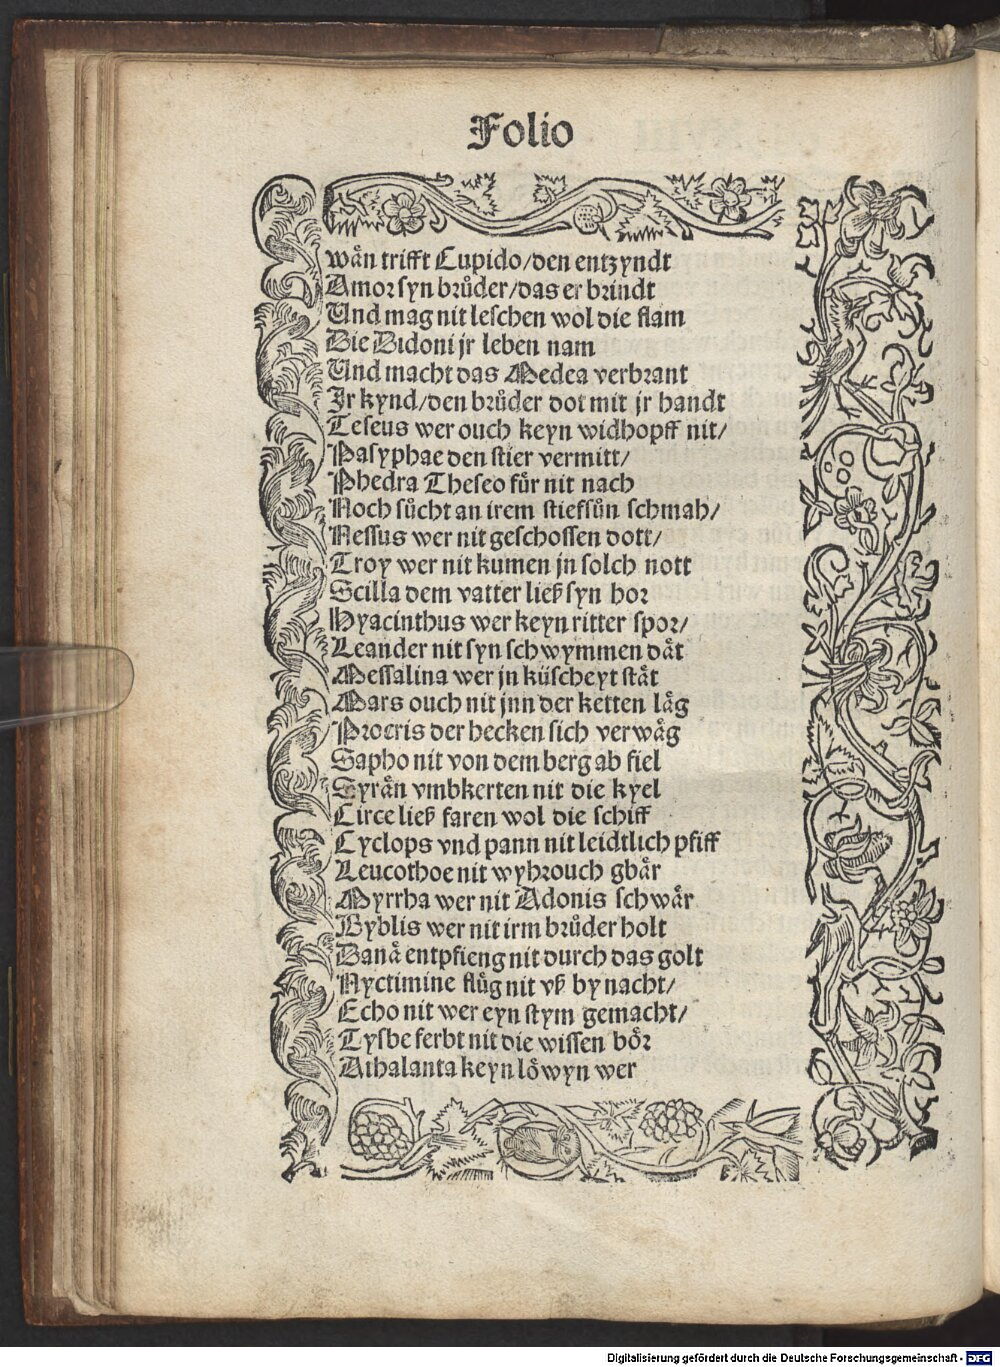 Folio
wän trifft Cupido/den entzyndt
Amor syn brůder/das er brindt
Und mag nit leschen wol die flam
Die Didoni jr leben nam
Und macht das Medea verbrant
Jr kynd/den brůder dot mit jr handt
Teseus wer ouch keyn widhopff nit/
Pasyphae den stier vermitt/
Phedra Theseo für nit nach
Noch sůcht an irem stiefsůn schmah/
Nessus wer nit geschossen dott/
Troy wer nit kumen jn solch nott
Scilla dem vatter ließ syn hor
Hyacinthus wer keyn ritter spor/
Leander nit syn schwymmen dät
Messalina wer jn küscheyt stät
Mars ouch nit jnn der ketten läg
Procris der hecken sich verwäg
Sapho nit von dem berg ab fiel
Syrän vmbkerten nit die kyel
Circe ließ faren wol die schiff
Cyclops vnd pann nit leidtlich pfiff
Leucothoe nit wyhrouch gbär
Myrrha wer nit Adonis schwär
Byblis wer nit irm brůder holt
Danä entpfieng nit durch das golt
Nyctimine flüg nit vß by nacht/
Echo nit wer eyn stym gemacht/
Tysbe ferbt nit die wissen bör
Athalanta keyn löwyn wer
Digitalisierung gefördert durch die Deutsche Forschungsgemeinschaft - DFG